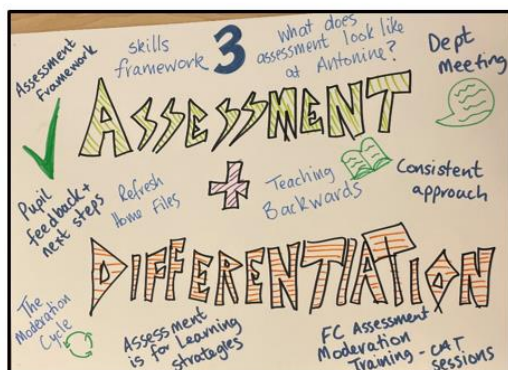 Assessment
Framework
skills
framework
3
What does
assessment look like
at Antonine?
Dept
Meeting
ASSESSMENT
+
Pupil
feedback +
next steps
Refresh
Home Files
Teaching
Backwards
Consistent
approach
DIFFERENTIATION
The
Moderation
Cycle
Assessment
is for Learning
strategies
FC Assessment
Moderation
Training - CAT
sessions